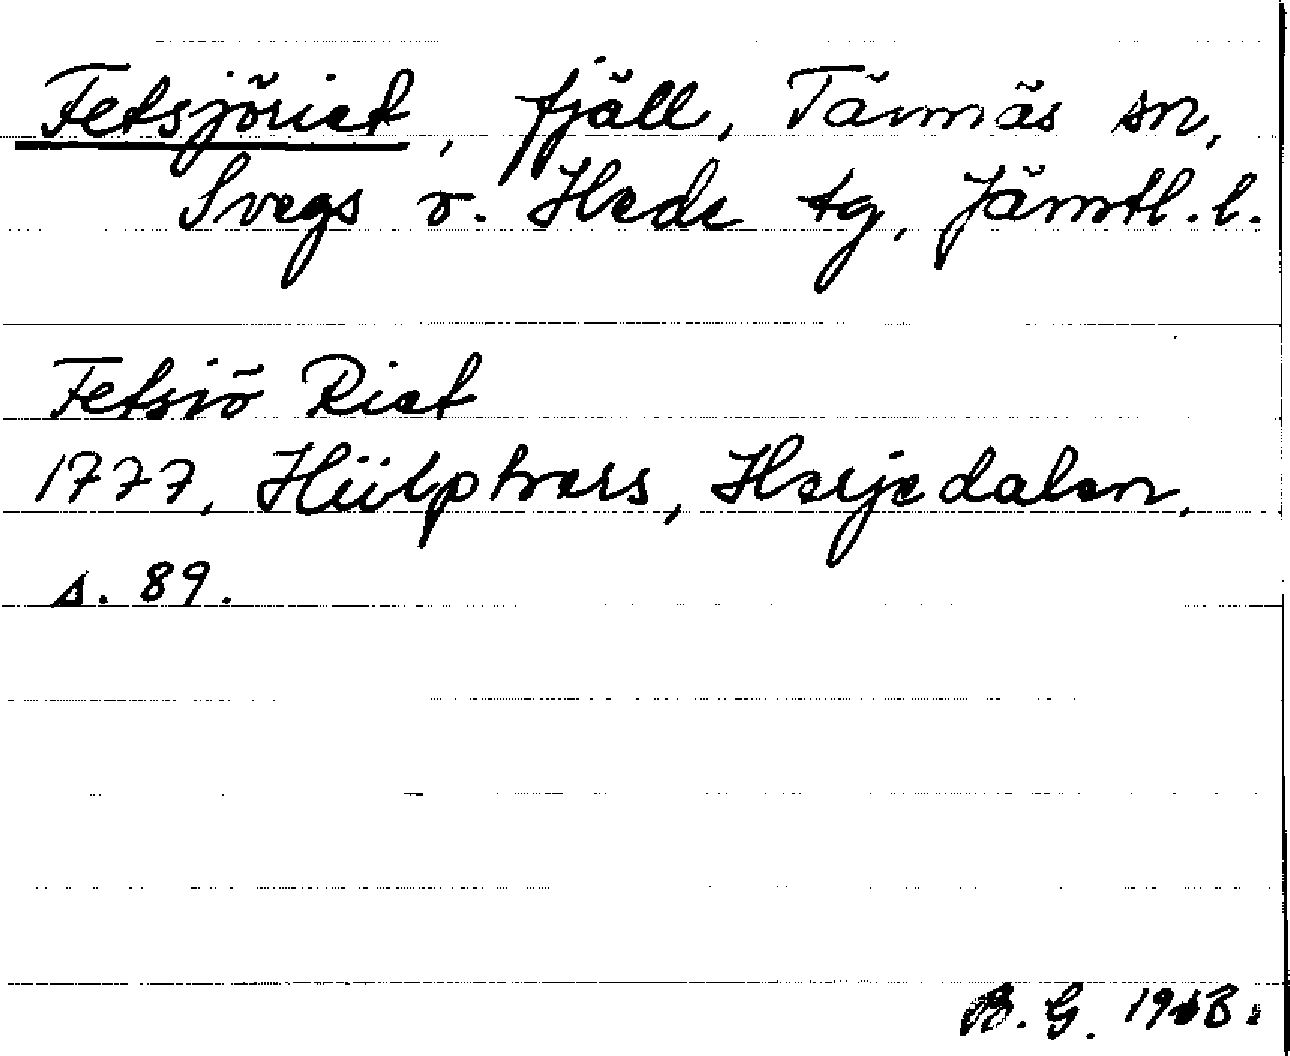 Fetsjöriet, fjäll, Tännäs sn,
Svegs o. Hede tg, Jämtl. l.
Fetsiö Riet
1777, Hülphers, Herjedalen,
s. 89.
B. G. 1968.